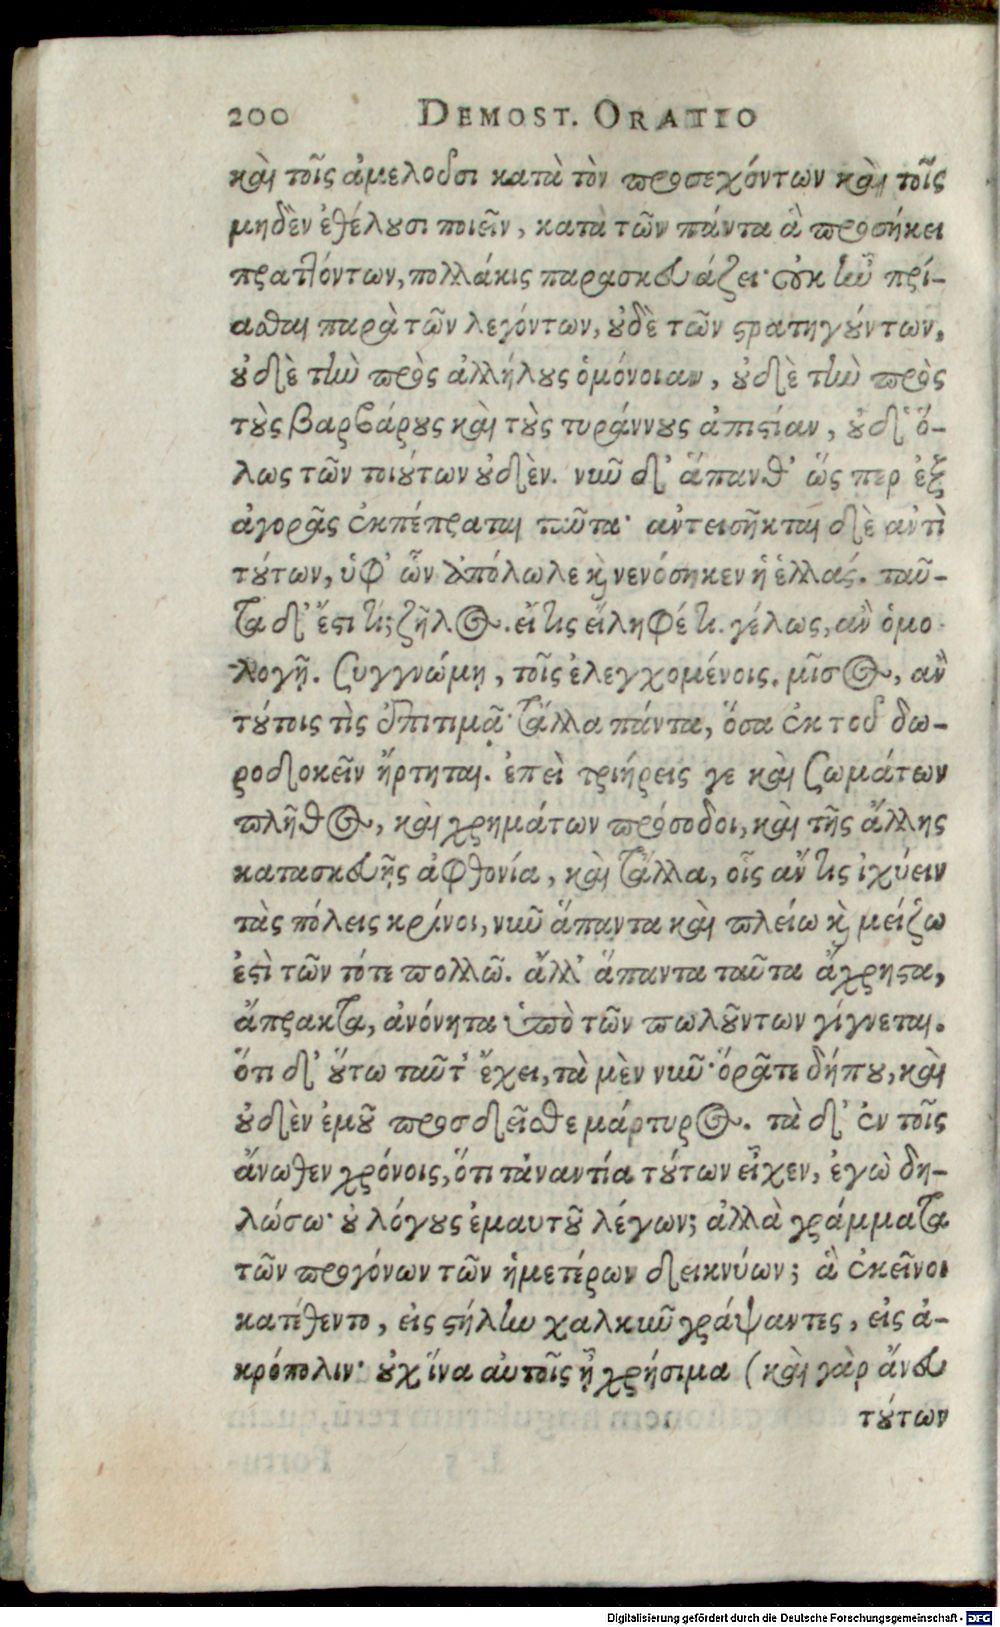 200 DEMOST. ORATIO
καὶ τοῖς ἀμελοῦσι κατὰ τὸν προσεχόντων καὶ τοῖς
μηδὲν ἐθέλουσι ποιεῖν, κατὰ τῶν πάντα ἃ προσήκει
πραττόντων, πολλάκις παρασκευάζει· οὐκ ἦν πρί-
ασθαι παρὰ τῶν λεγόντων, οὐδὲ τῶν στρατηγούντων,
οὐδὲ τὴν πρὸς ἀλλήλους ὁμόνοιαν, οὐδὲ τὴν πρὸς
τοὺς βαρβάρους καὶ τοὺς τυράννους ἀπιστίαν, οὐδ' ὅ-
λως τῶν τοιούτων οὐδέν. νῦν δ' ἅπανθ' ὥς περ ἐξ
ἀγορᾶς ἐκπέπραται ταῦτα· ἀντεισῆκται δὲ ἀντὶ
τούτων, ὑφ' ὧν ἀπόλωλε καὶ νενόσηκεν ἡ ἑλλάς. ταῦ-
τα δ' ἔστι τί; ζῆλος. εἴ τις εἴληφέ τι. γέλως, ἂν ὁμο
λογῇ. συγγνώμη, τοῖς ἐλεγχομένοις. μῖσος, ἂν
τούτοις τὶς ἐπιτιμᾷ· τἄλλα πάντα, ὅσα ἐκ τοῦ δω-
ροδοκεῖν ἤρτηται. ἐπεὶ τριήρεις γε καὶ σωμάτων
πλῆθος, καὶ χρημάτων πρόσοδοι, καὶ τῆς ἄλλης
κατασκευῆς ἀφθονία, καὶ τἄλλα, οἷς ἄν τις ἰχύειν
τὰς πόλεις κρίνοι, νῦν ἅπαντα καὶ πλείω καὶ μείζω
ἐστὶ τῶν τότε πολλῷ. ἀλλ' ἅπαντα ταῦτα ἄχρηστα,
ἄπρακτα, ἀνόνητα ὑπὸ τῶν πωλούντων γίγνεται.
ὅτι δ' οὕτω ταῦτ' ἔχει, τὰ μὲν νῦν· ὁρᾶτε δήπου, καὶ
οὐδὲν ἐμοῦ προσδεῖσθε μάρτυρος. τὰ δ' ἐν τοῖς
ἄνωθεν χρόνοις, ὅτι τἀναντία τούτων εἶχεν, ἐγὼ δη-
λώσω· οὐ λόγους ἐμαυτοῦ λέγων; ἀλλὰ γράμματα
τῶν προγόνων τῶν ἡμετέρων δεικνύων; ἃ ἐκεῖνοι
κατέθεντο, εἰς στήλην χαλκῆν γράψαντες, εἰς ἀ-
κρόπολιν· οὐχ ἵνα αὐτοῖς ᾖ χρήσιμα (καὶ γὰρ ἄνευ
τούτων
Digitalisierung gefördert durch die Deutsche Forschungsgemeinschaft · DFG